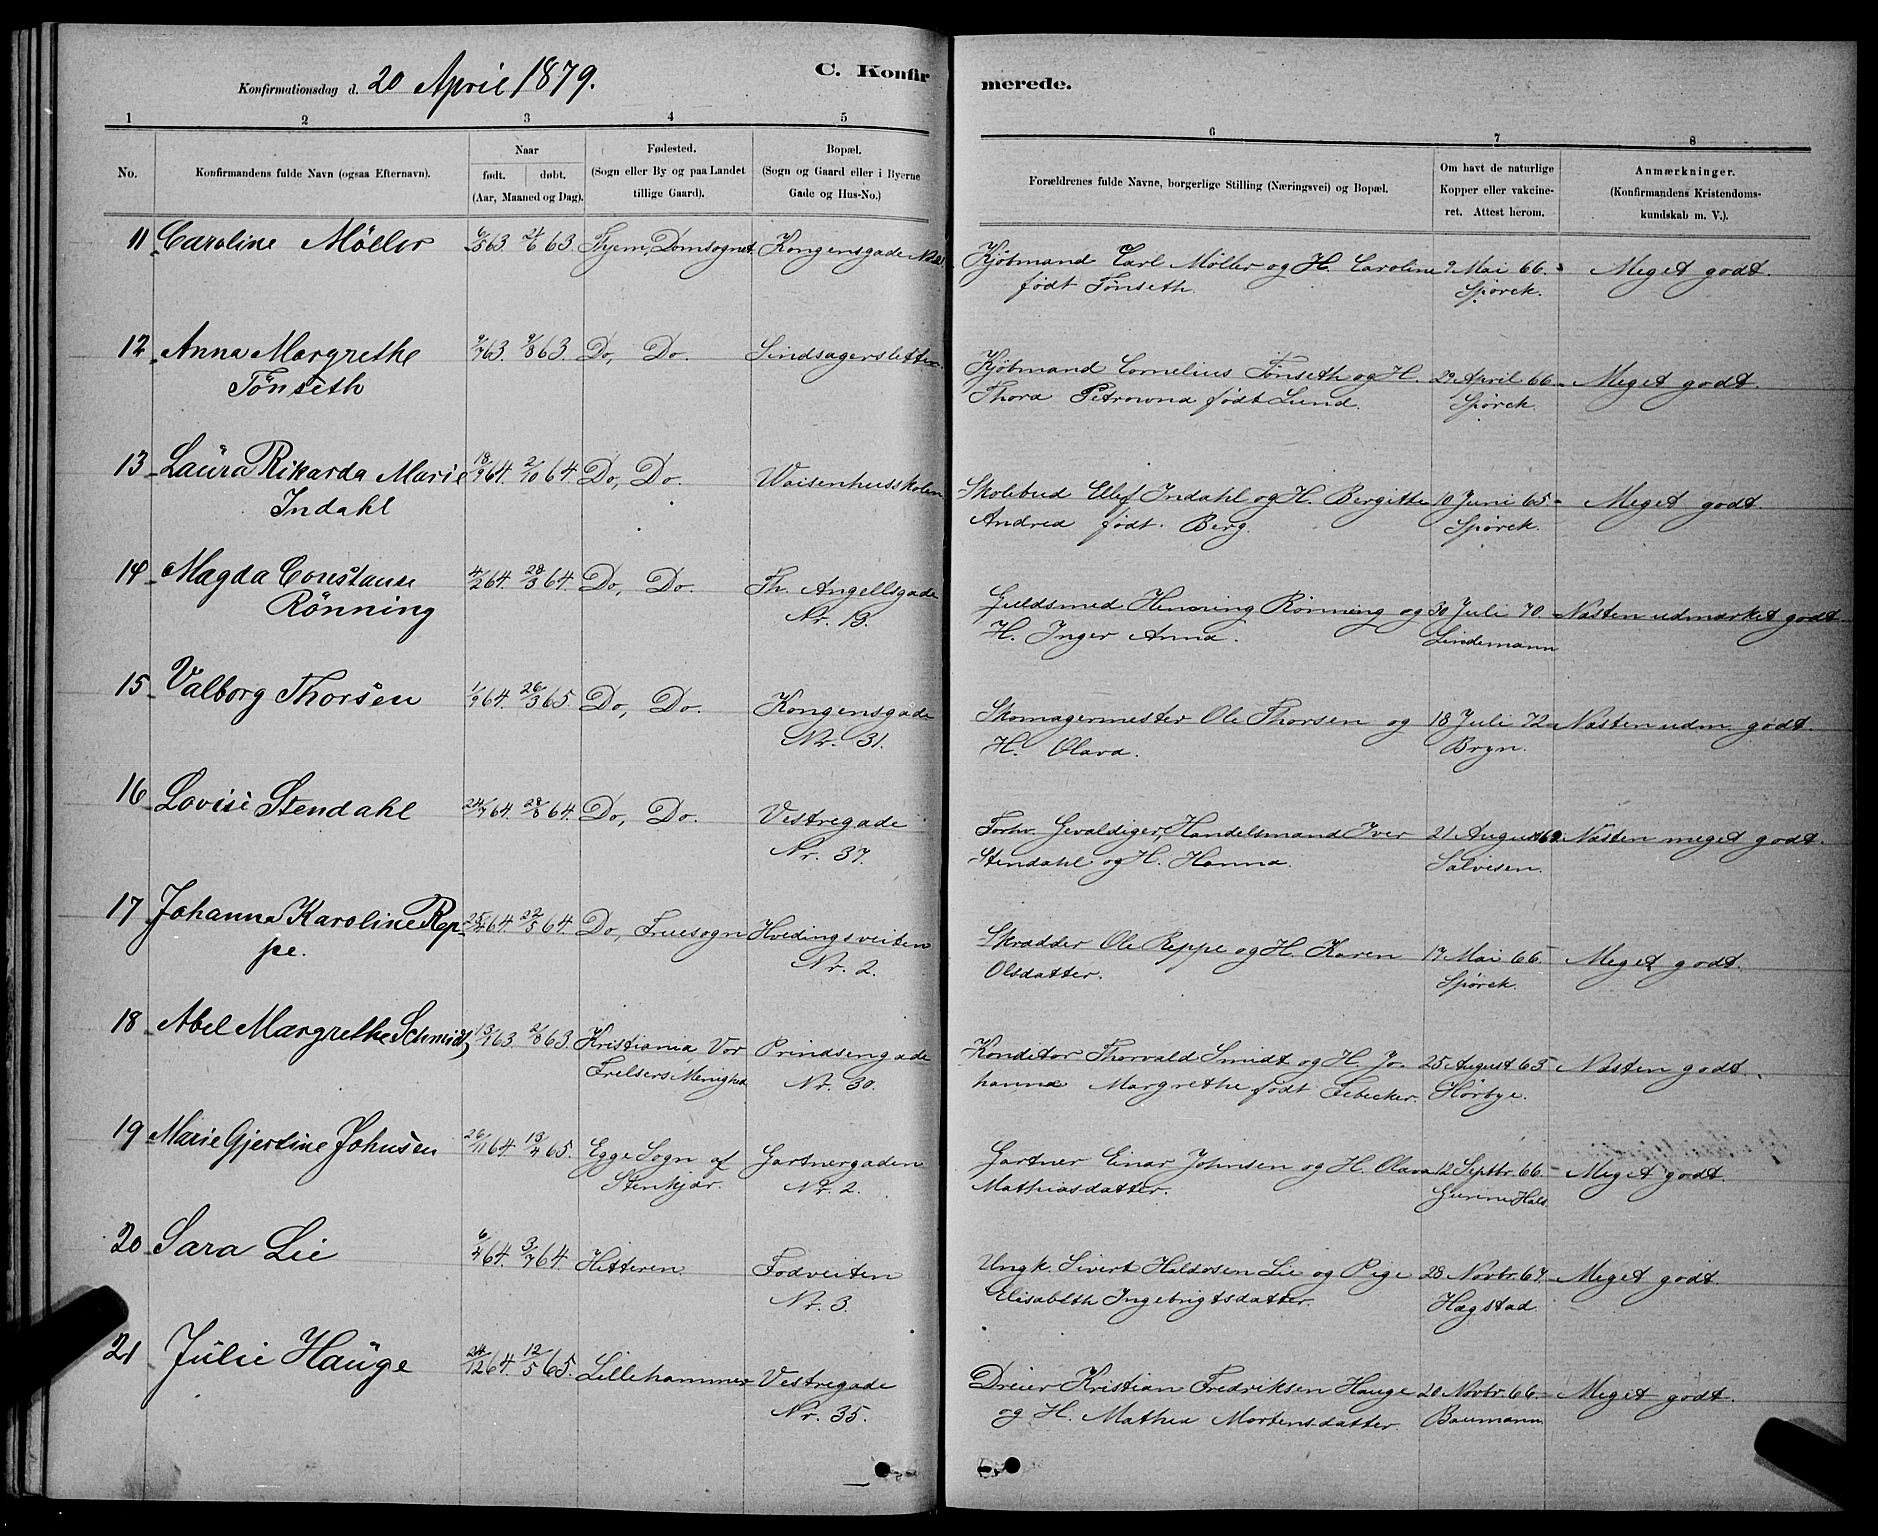 Konfirmationsdag d. 20 April 1879.
C. Konfirmerede.
1 2 3 4 5 6 7 8
No.
Konfirmandens fulde Navn (ogsaa Efternavn).
Naar
født. døbt.
(Aar, Maaned og Dag).
Fødested.
(Sogn eller By og paa Landet
tillige Gaard).
Bopæl.
(Sogn og Gaard eller i Byerne
Gade og Hus-No.)
Forældrenes fulde Navne, borgerlige Stilling (Næringsvei) og Bopæl.
Om havt de naturlige
Kopper eller vakcine-
ret. Attest herom.
Anmærkninger.
(Konfirmandens Kristendoms-
kundskab m. V.).
11 Caroline Möller 63. 21/6 63. Thjem, Domsognet. Kongensgade Kjöbmand Carl Møller og H. Caroline 9 Mai 66. Meget godt.
født Tønseth. Spörck.
12 Anna Margrethe 9/7 63. 9/8 63. Do, Do. Lindsagersletten Kjöbmand Cornelius Tönseth og H. 29 April 66 Meget godt.
Tönseth Thora Petrowna født Lund. Spörck.
13 Laura Rikarda Marie 18/9 64. 2/10 64. Do, Do. Waisenhusskolen Skolebud Ellef Indahl og H. Bergitte 10 Juni 65 Meget godt.
Indahl Andrea født. Berg. Spörck.
14 Magda Constanse 4/2 64. 28/3 64. Do, Do. Th. Angellsgade Guldsmed Henning Rönning og 30 Juli 70. Næsten udmærket godt
Rönning Nr. 13. H. Inger Anna. Lindemann
15 Valborg Thorsen 1/9 64. 26/3 65. Do, Do. Kongensgade Skomagermester Ole Thorsen og 18 Juli 72 Næsten udm. godt.
Nr. 31. H. Olava. Bryn.
16 Lovise Stendahl 24/7 64. 28/8 64. Do, Do. Vestregade Forhv. Gevaldiger, Handelsmand Iver 21 August 69 Næsten meget godt.
Nr. 37. Stendahl og H. Hanna. Salvesen.
17 Johanna Karoline Rep- 25/4 64. 22/5 64. Do, Fruesogn Hvedingsveiten Skrædder Ole Reppe og H. Karen 17 Mai 66 Meget godt.
pe. Nr. 2. Olsdatter. Spörck.
18 Abel Margrethe Schmidt 13/7 63. 2/8 63. Kristiania, Vor Prindsengade Konditor Thorvald Smidt og H. Jo- 25 August 65 Næsten godt.
Frelsers Menighed Nr. 30. hanna Margrethe født Febecker. Hörbye.
19 Marie Gjertine Johnsen 26/11 64. 13/4 65. Egge Sogn af Gartnergaden Gartner Einar Johnsen og H. Olava 12 Septbr. 66. Meget godt.
Stenkjær. Nr. 2. Mathiasdatter. Gurine Hals
20 Sara Lie 6/4 64. 3/7 64. Hitteren. Fodveiten Ungk. Sivert Haldosen Lie og Pige 28 Novbr. 67. Meget godt
Nr. 3. Elisabeth Ingebrigtsdatter. Hagstad
21 Julie Hauge 24/12 64. 12/5 65. Lillehammer Vestregade Dreier Kristian Fredriksen Hauge 20 Novbr. 66. Meget godt.
Nr. 35. og H. Mathea Mortensdatter. Baumann.